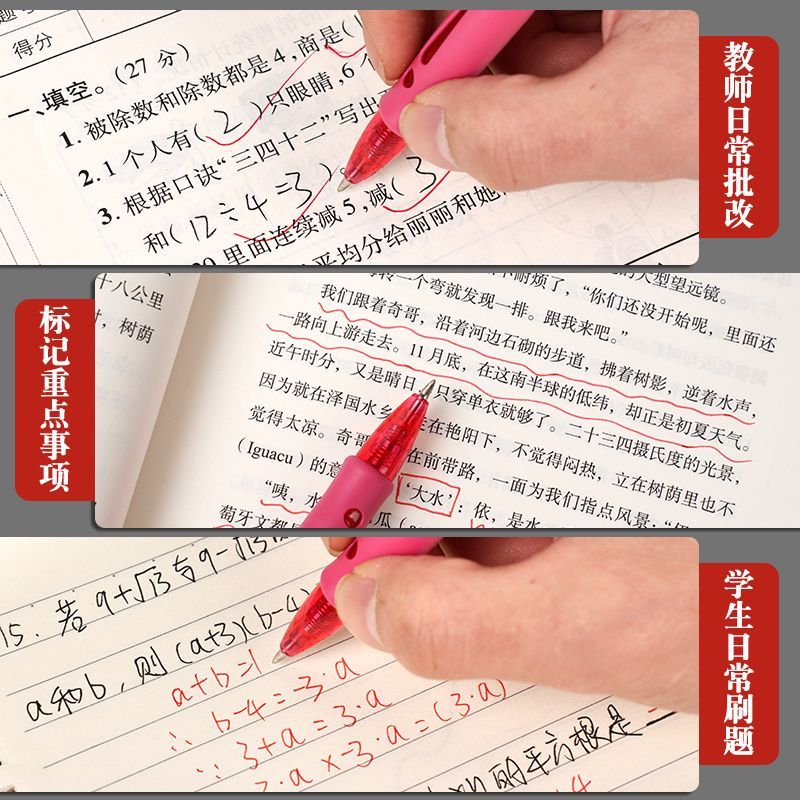 得分
一、填空。(27 分)
1. 被除数和除数都是 4, 商是(
2. 1 个人有( 2 )只眼睛, 6 个
3. 根据口诀“三四十二”写出
和( 12÷4=3 )。
里面连续减 5, 减( 3
平均分给丽丽和她
教师日常批改
十八公里
树荫
转一个弯就发现一排。跟我来吧。”
不耐烦了，“你们还没开始呢，里面还
的大型望远镜。
我们跟着奇哥，沿着河边石砌的步道，拂着树影，逆着水声，
一路向上游走去。11 月底，在这南半球的低纬，却正是初夏天气。
近午时分，又是晴日，只穿单衣就够了。二十三四摄氏度的光景，
因为就在泽国水乡
在艳阳下，不觉得闷热，立在树荫里也不
觉得太凉。奇哥
在前带路，一面为我们指点风景：
(Iguacu) 的意
‘大水’：依，是水
“咦，水
瓜
葡萄牙文都是
标记重点事项
15. 若 9+√13与9-√13
a和b，则 (a+3)(b-4)
a+b=1
∴ b-4=-3·a
∵ 3+a=3·a
·a×-3·a=(3·a)
的平方根是
4
学生日常刷题